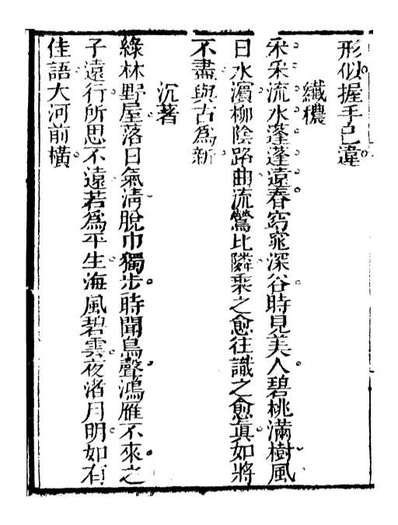 形似握手已違
纖穠
采采流水蓬蓬遠春窈窕深谷時見美人碧桃滿樹風
日水濱柳陰路曲流鶯比隣乘之愈往識之愈眞如將
不盡與古爲新
沉著
綠林野屋落日氣清脫巾獨步時聞鳥聲鴻雁不來之
子遠行所思不遠若爲平生海風碧雲夜渚月明如有
佳語大河前橫